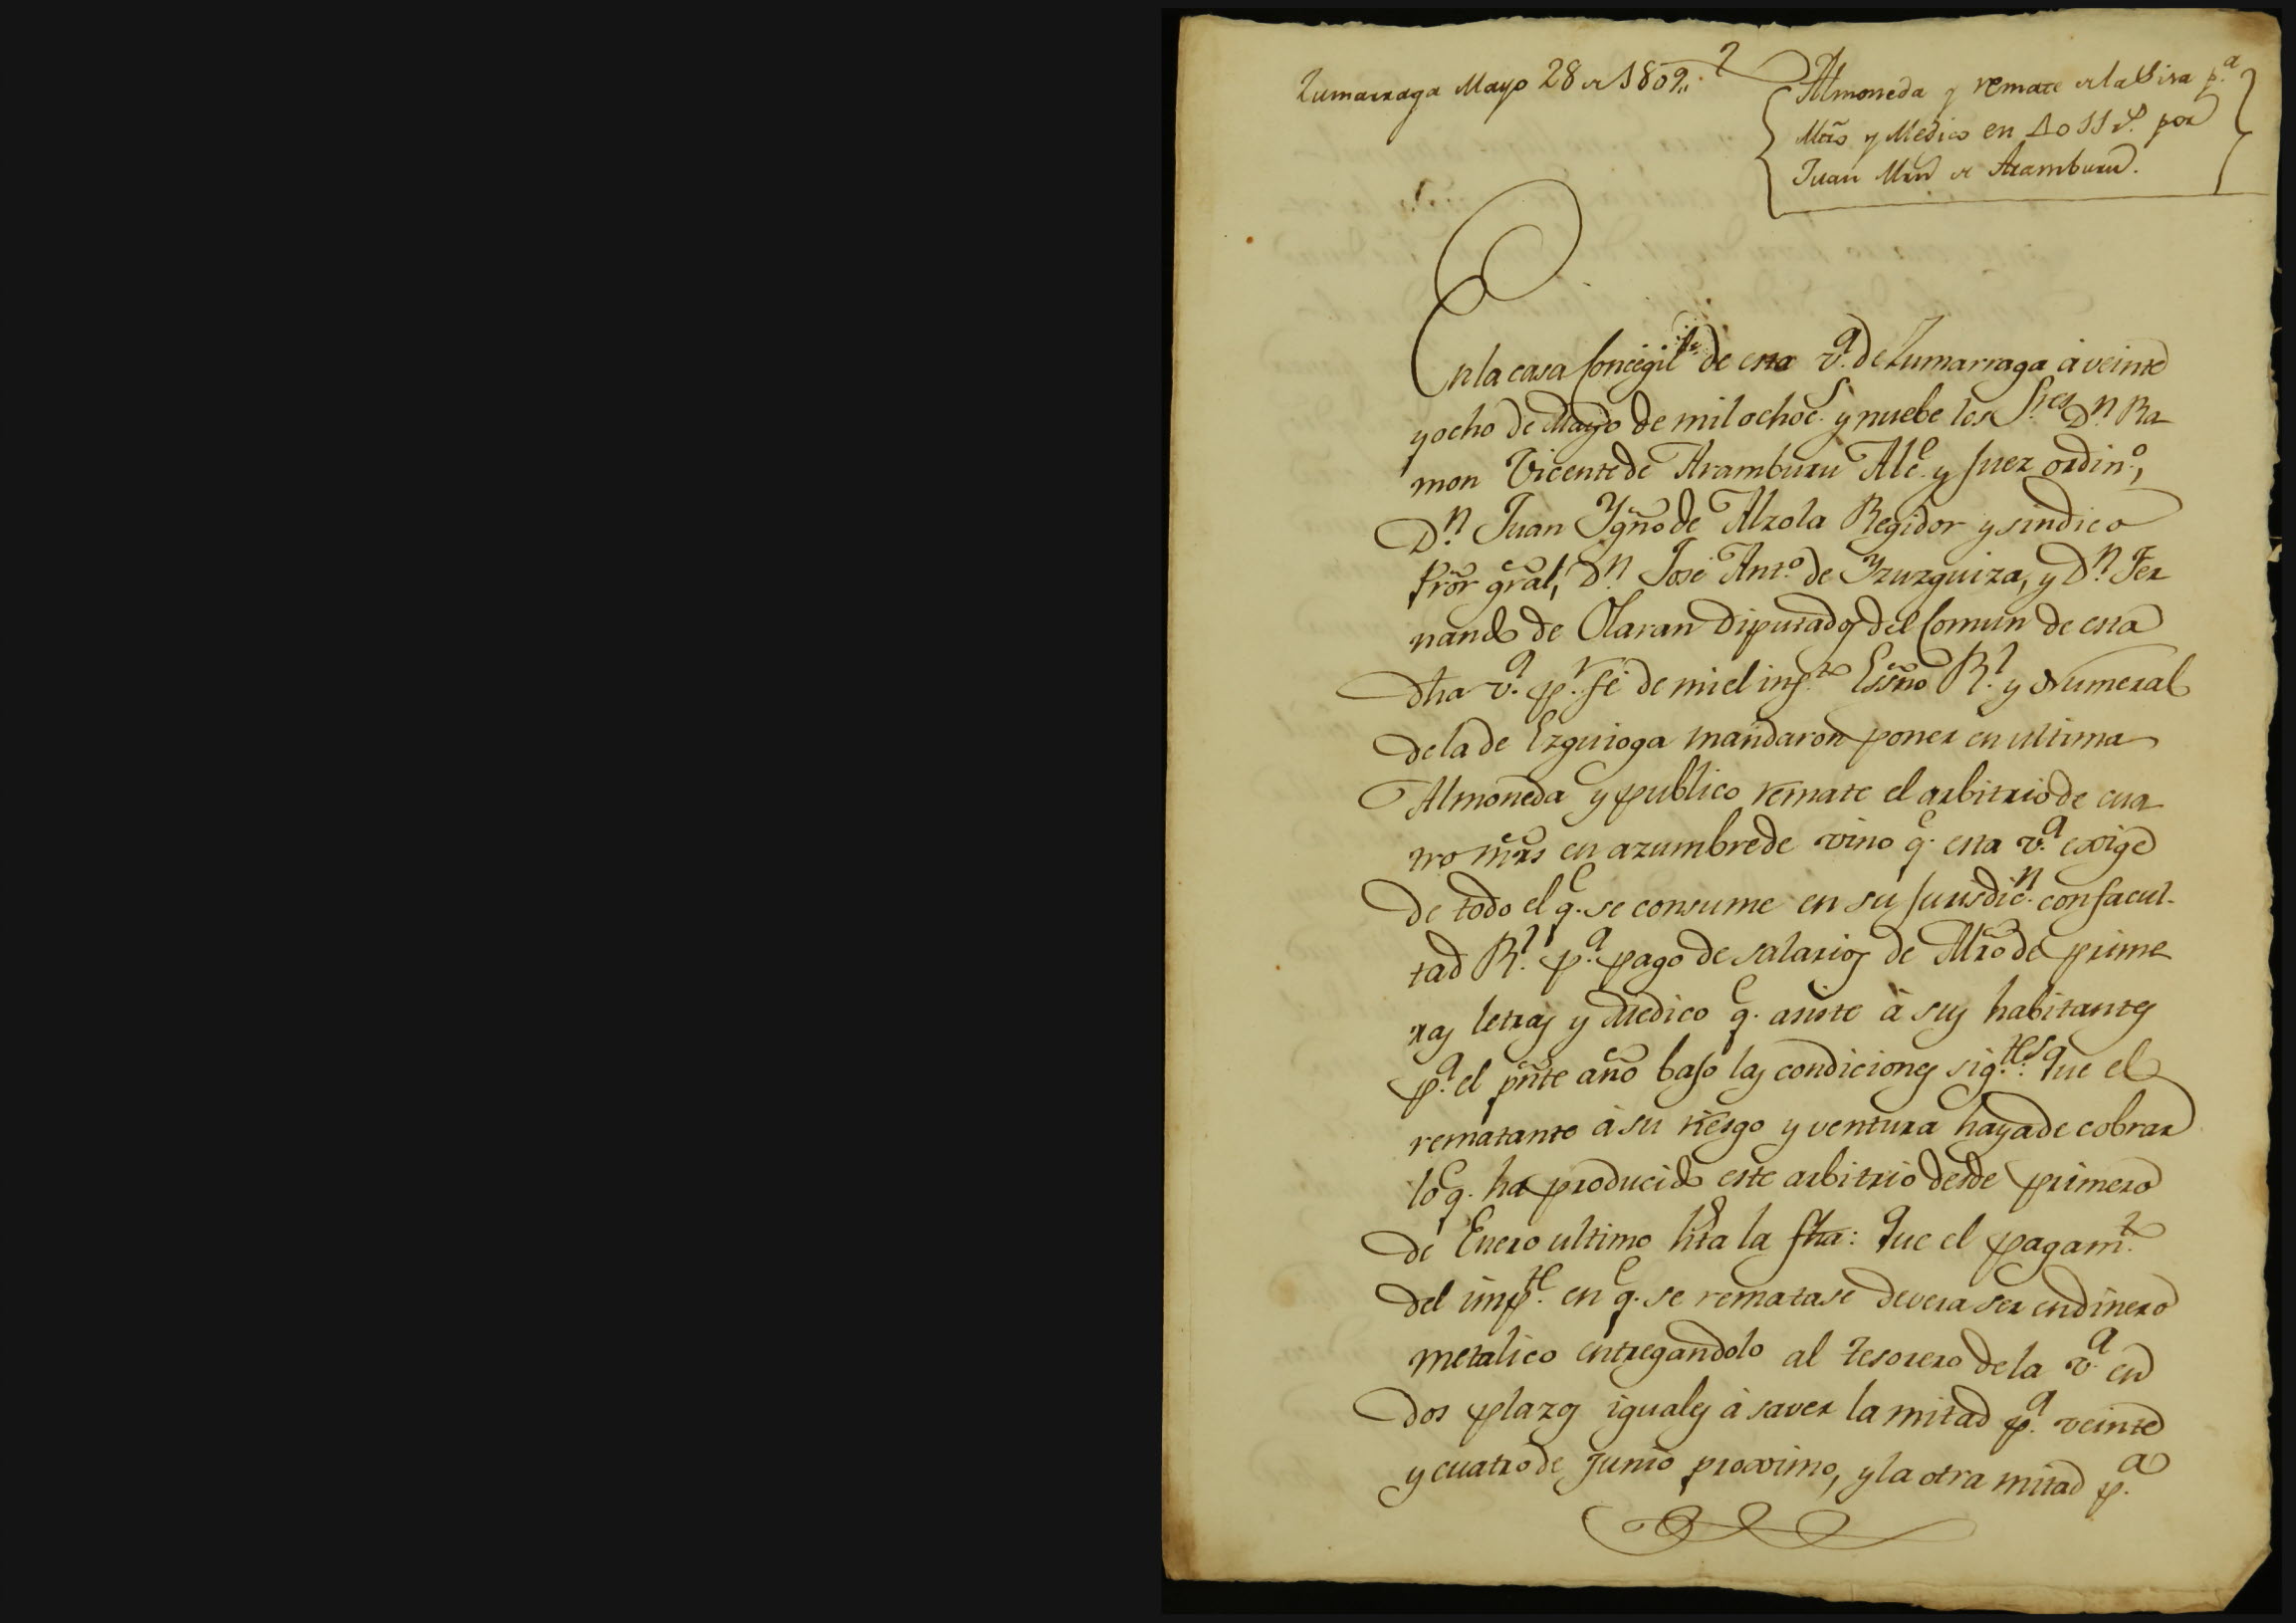 Zumarraga Mayo 28 de 1809,,
Almoneda y remate de la Sisa p.a
Mrõ y Medico en 4011 r.s por
Juan Mrñ de Aramburu.
En la casa Concegil de esta v.a de Zumarraga à veinte
y ocho de Mayo de mil ochoc.s y nuebe los S.res D.n Ra
mon Vicente de Aramburu Alc.e y Juez ordin.o,
D.n Juan Ygñõ de Alzola Regidor y sindico
Prõr grãl, D.n José Ant.o de Yzuzquiza, y D.n Fer
nando de Olaran Diputados del Comun de esta
dha v.a p.r fé de mi el inf.to Essño R.l y Numeral
de la de Ezquioga mandaron poner en ultima
Almoneda y publico remate el arbitrio de cua
tro mrs̃ en azumbre de vino q.e esta v.a exige
de todo el q.e se consume en su Jurisdic.n con facul-
tad R.l p.a pago de salarios de Mrõ de prime
ras letras y Medico q.e asiste à sus habitantes
p.a el pñte año bajo las condiciones sig.tes: Que el
rematante à su riesgo y ventura haya de cobrar
lo q.e ha producido este arbitrio desde primero
de Enero ultimo hta la fha: Que el pagam.to
del imp.te en q.e se rematase devera ser en dinero
metalico entregandolo al tesorero de la v.a en
dos plazos iguales à saver la mitad p.a veinte
y cuatro de Junio proximo, y la otra mitad p.a